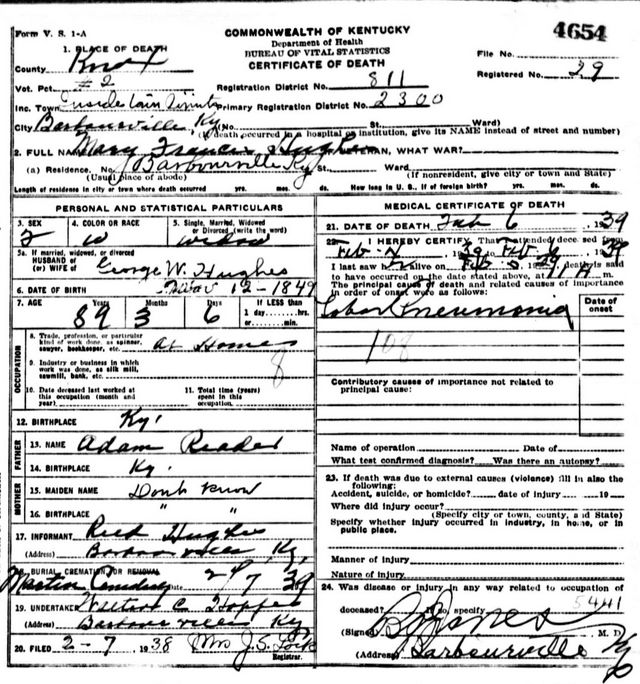 Form V. S. 1-A
COMMONWEALTH OF KENTUCKY
Department of Health
BUREAU OF VITAL STATISTICS
CERTIFICATE OF DEATH
4654
File No.
Registered No. 29
1. PLACE OF DEATH
County Knox
Vot. Pct. #2
Registration District No. 811
Inc. Town Inside town limits Primary Registration District No. 2300
City Barbourville, Ky (No. St. Ward)
(If death occurred in a hospital or institution, give its NAME instead of street and number)
2. FULL NAME Mary Francis Hughes IF VETERAN, WHAT WAR?
(a) Residence. No. Barbourville Ky St. Ward.
(Usual place of abode) (If nonresident, give city or town and State)
Length of residence in city or town where death occurred yrs. mos. ds. How long in U. S., if of foreign birth? yrs. mos. ds.
PERSONAL AND STATISTICAL PARTICULARS
3. SEX 4. COLOR OR RACE 5. Single, Married, Widowed or Divorced (write the word)
F W Widow
5a. If married, widowed, or divorced
HUSBAND of
(or) WIFE of George W. Hughes
6. DATE OF BIRTH Nov 12-1849
7. AGE Years Months Days If LESS than
89 3 6 1 day hrs.
or min.
OCCUPATION
8. Trade, profession, or particular
kind of work done, as spinner,
sawyer, bookkeeper, etc. At Home
9. Industry or business in which
work was done, as silk mill,
sawmill, bank, etc. 8
10. Date deceased last worked at
this occupation (month and
year)
11. Total time (years)
spent in this
occupation
12. BIRTHPLACE Ky.
FATHER
13. NAME Adam Reader
14. BIRTHPLACE Ky.
MOTHER
15. MAIDEN NAME Dont Know
16. BIRTHPLACE " "
17. INFORMANT Hughes
(Address) Barbourville, Ky.
18. BURIAL CREMATION OR REMOVAL
Cemetery Date 2-7 39
19. UNDERTAKER C. Hopper
(Address) Barbourville Ky
20. FILED 2-7 1938 Mrs J. S.
Registrar.
MEDICAL CERTIFICATE OF DEATH
21. DATE OF DEATH Feb 6, 1939
22. I HEREBY CERTIFY, That I attended deceased from
Feb 2, 39 to Feb 6, 1939
I last saw alive on Feb 5, 39, death is said
to have occurred on the date stated above, at 1 A m.
The principal cause of death and related causes of importance
in order of onset were as follows:
Date of onset
Lobar Pneumonia
108
Contributory causes of importance not related to
principal cause:
Name of operation Date of
What test confirmed diagnosis? Was there an autopsy?
23. If death was due to external causes (violence) fill in also the
following:
Accident, suicide, or homicide? date of injury 19
Where did injury occur?
(Specify city or town, county, and State)
Specify whether injury occurred in industry, in home, or in
public place.
Manner of injury
Nature of injury
24. Was disease or injury in any way related to occupation of
deceased? If so, specify 5441
(Signed) M. D.
(Address) Barbourville Ky